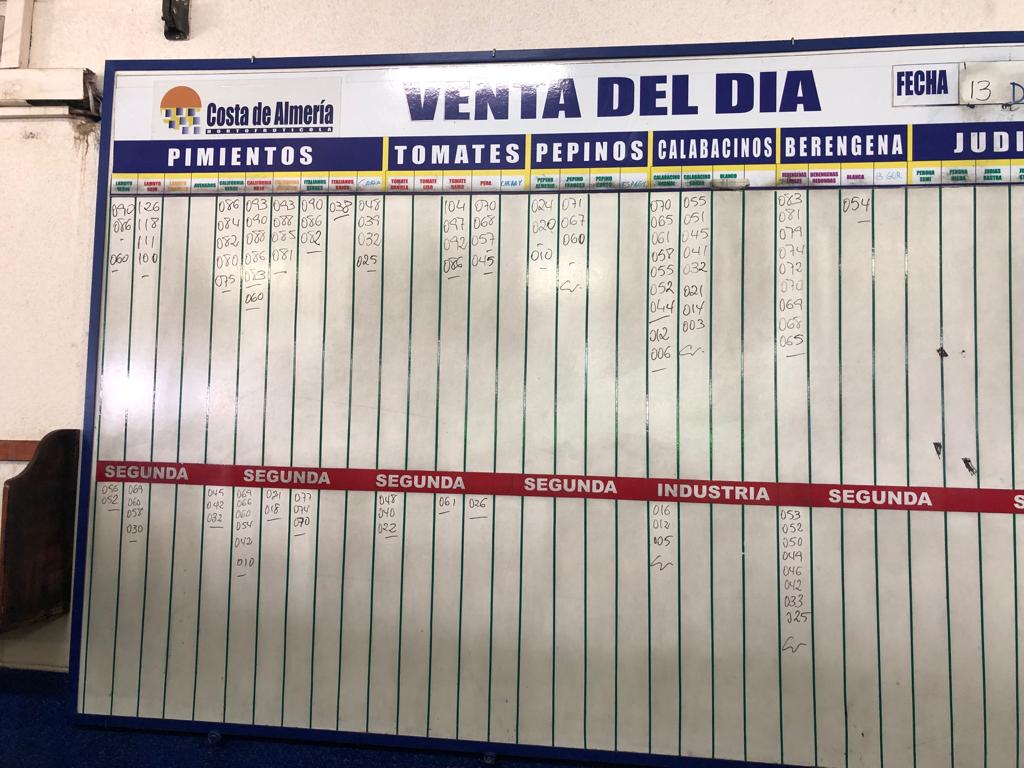 Costa de Almería
HORTOFRUTICOLA
VENTA DEL DIA
FECHA 13 D
PIMIENTOS TOMATES PEPINOS CALABACINOS BERENGENA JUDI
LAMUYO CALIFORNIA CALIFORNIA ITALIANOS ITALIANOS TOMATE TOMATE TOMATE PERA CHERRY PEPINO PEPINO PEPINO CALABACINO CALABACINO BLANCO BERENGENAS BERENGENAS BLANCA PERONA PERONA JUDIAS
090 126 086 093 093 090 038 048 104 070 024 071 070 055 083 054
086 118 084 090 088 086 039 097 068 020 067 065 051 081
- 111 082 088 085 082 032 092 057 - 060 061 045 079
060 100 080 086 081 025 086 045 010 - 058 041 074
075 083 055 032 072
060 052 021 070
044 014 069
012 003 068
006 065
SEGUNDA SEGUNDA SEGUNDA SEGUNDA INDUSTRIA SEGUNDA S
056 069 045 069 021 077 048 061 026 016 053
052 060 042 066 018 074 040 012 052
058 032 060 070 022 005 050
030 054 049
042 046
010 042
033
025